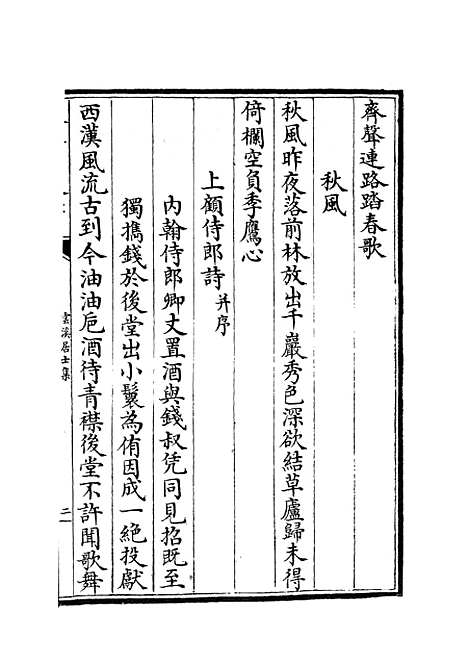 齊聲連路踏春歌
秋風
秋風昨夜落前林放出千巖秀色深欲結草廬歸未得
倚欄空負季鷹心
上顧侍郎詩并序
內翰侍郎卿丈置酒與錢叔凭同見招既至
獨攜錢於後堂出小鬟為侑因成一絕投獻
西漢風流古到今油油巵酒待青襟後堂不許聞歌舞
雲溪居士集
二